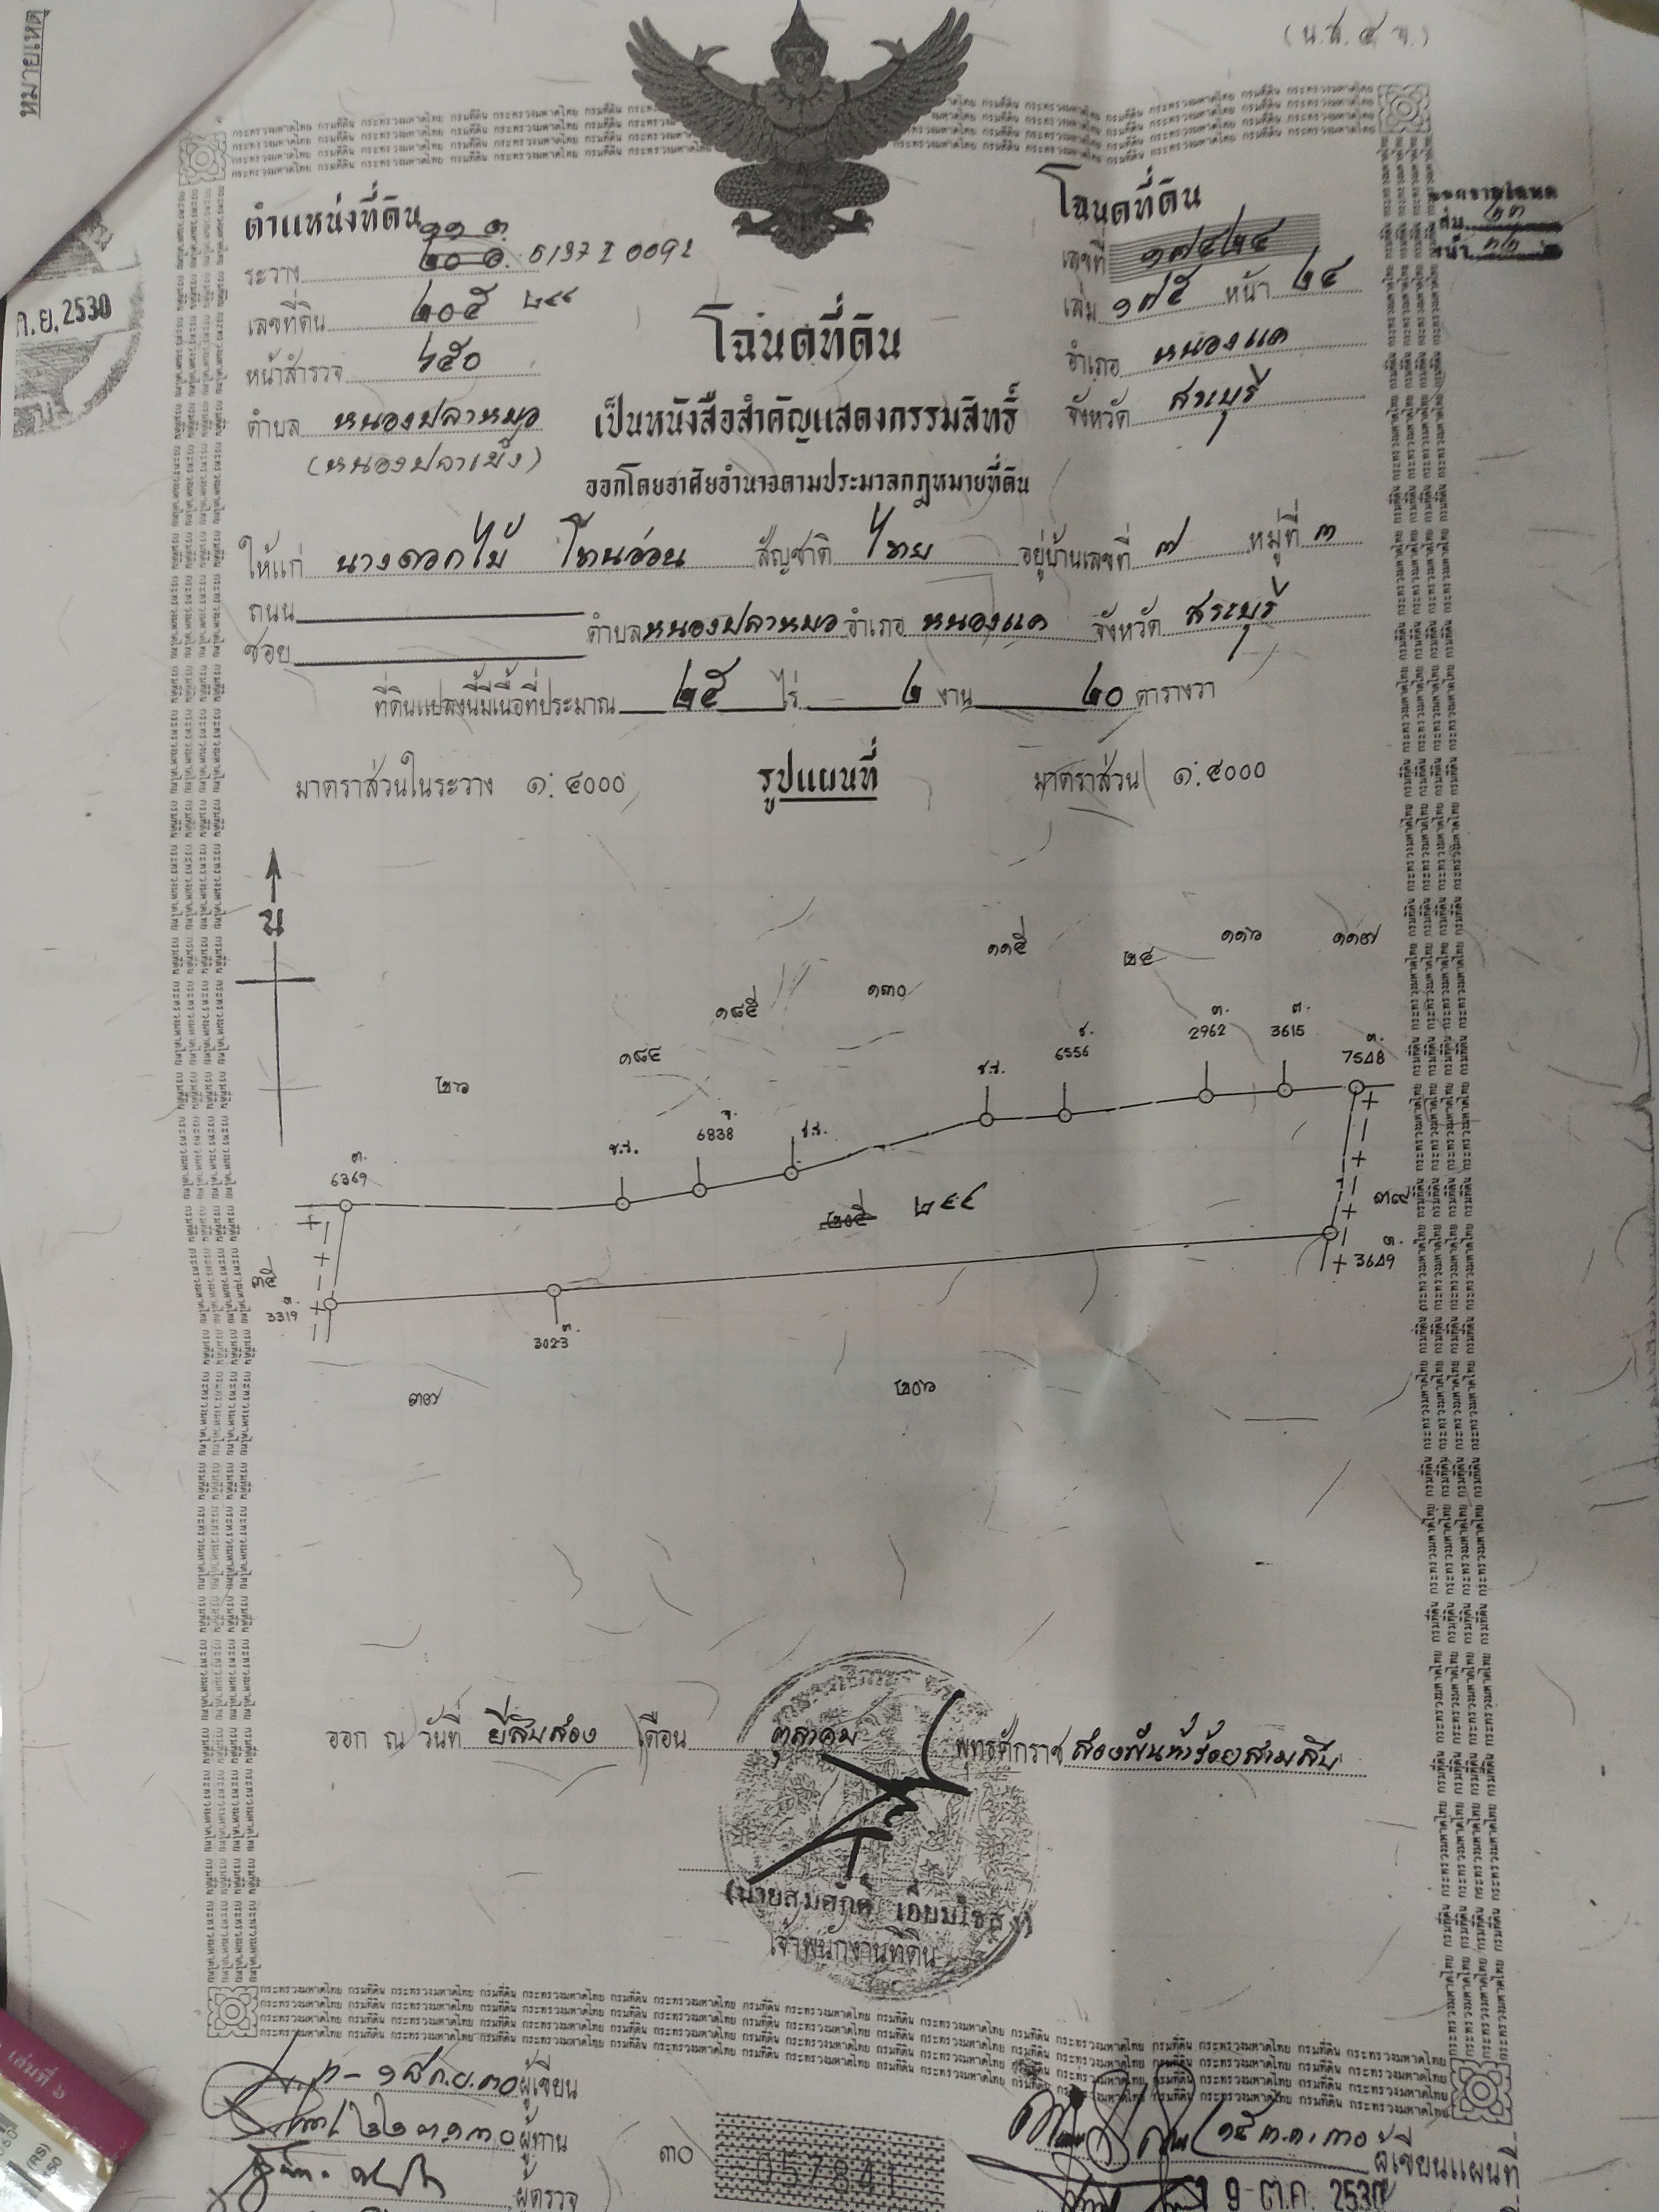 หมายเหตุ
(น.ส. ๔ จ.)
ตำแหน่งที่ดิน
ระวาง 5137 I 0092
เลขที่ดิน ๒๐๕ ๒๔๔
หน้าสำรวจ ๖๕๐
ตำบล หนองปลาหมอ
(หนองปลาเข็ง)
ก.ย. 2530
โฉนดที่ดิน
เลขที่ ๑๗๔๒๔
เล่ม ๑๗๕ หน้า ๒๔
อำเภอ หนองแค
จังหวัด สระบุรี
โฉนดที่ดิน
เป็นหนังสือสำคัญแสดงกรรมสิทธิ์
ออกโดยอาศัยอำนาจตามประมวลกฎหมายที่ดิน
ให้แก่ นางดอกไม้ โทนอ่อน สัญชาติ ไทย อยู่บ้านเลขที่ ๗ หมู่ที่ ๓
ถนน
ซอย
ตำบล หนองปลาหมอ อำเภอ หนองแค จังหวัด สระบุรี
ที่ดินแปลงนี้มีเนื้อที่ประมาณ ๒๕ ไร่ ๒ งาน ๒๐ ตารางวา
มาตราส่วนในระวาง ๑:๔๐๐๐ รูปแผนที่ มาตราส่วน ๑:๔๐๐๐
น
๑๑๕ ๒๔ ๑๑๖ ๑๑๗
๑๘๕ ๑๓๐
๒๖ ๑๘๔
ต. 2962 ต. 3615 ต. 7548
ช. 6556
6838
ต. 6369
๒๐๕ ๒๔๔
๓๙
ต. 3649
๓๕
3319
ต. 3023
๓๗ ๒๐๖
ออก ณ วันที่ ยี่สิบสอง เดือน ตุลาคม พุทธศักราช สองพันห้าร้อยสามสิบ
(นายสมศักดิ์ เอี่ยมไธสง)
เจ้าพนักงานที่ดิน
ผู้เขียน
ผู้ทาน
ผู้ตรวจ
๓๐ 057841
ผู้เขียนแผนที่
19 ต.ค. 2530
เล่มที่ ๖